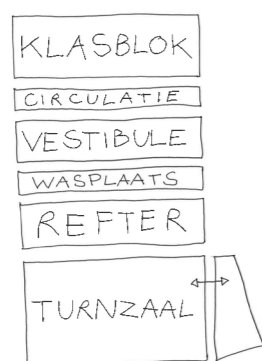 KLASBLOK
CIRCULATIE
VESTIBULE
WASPLAATS
REFTER
TURNZAAL